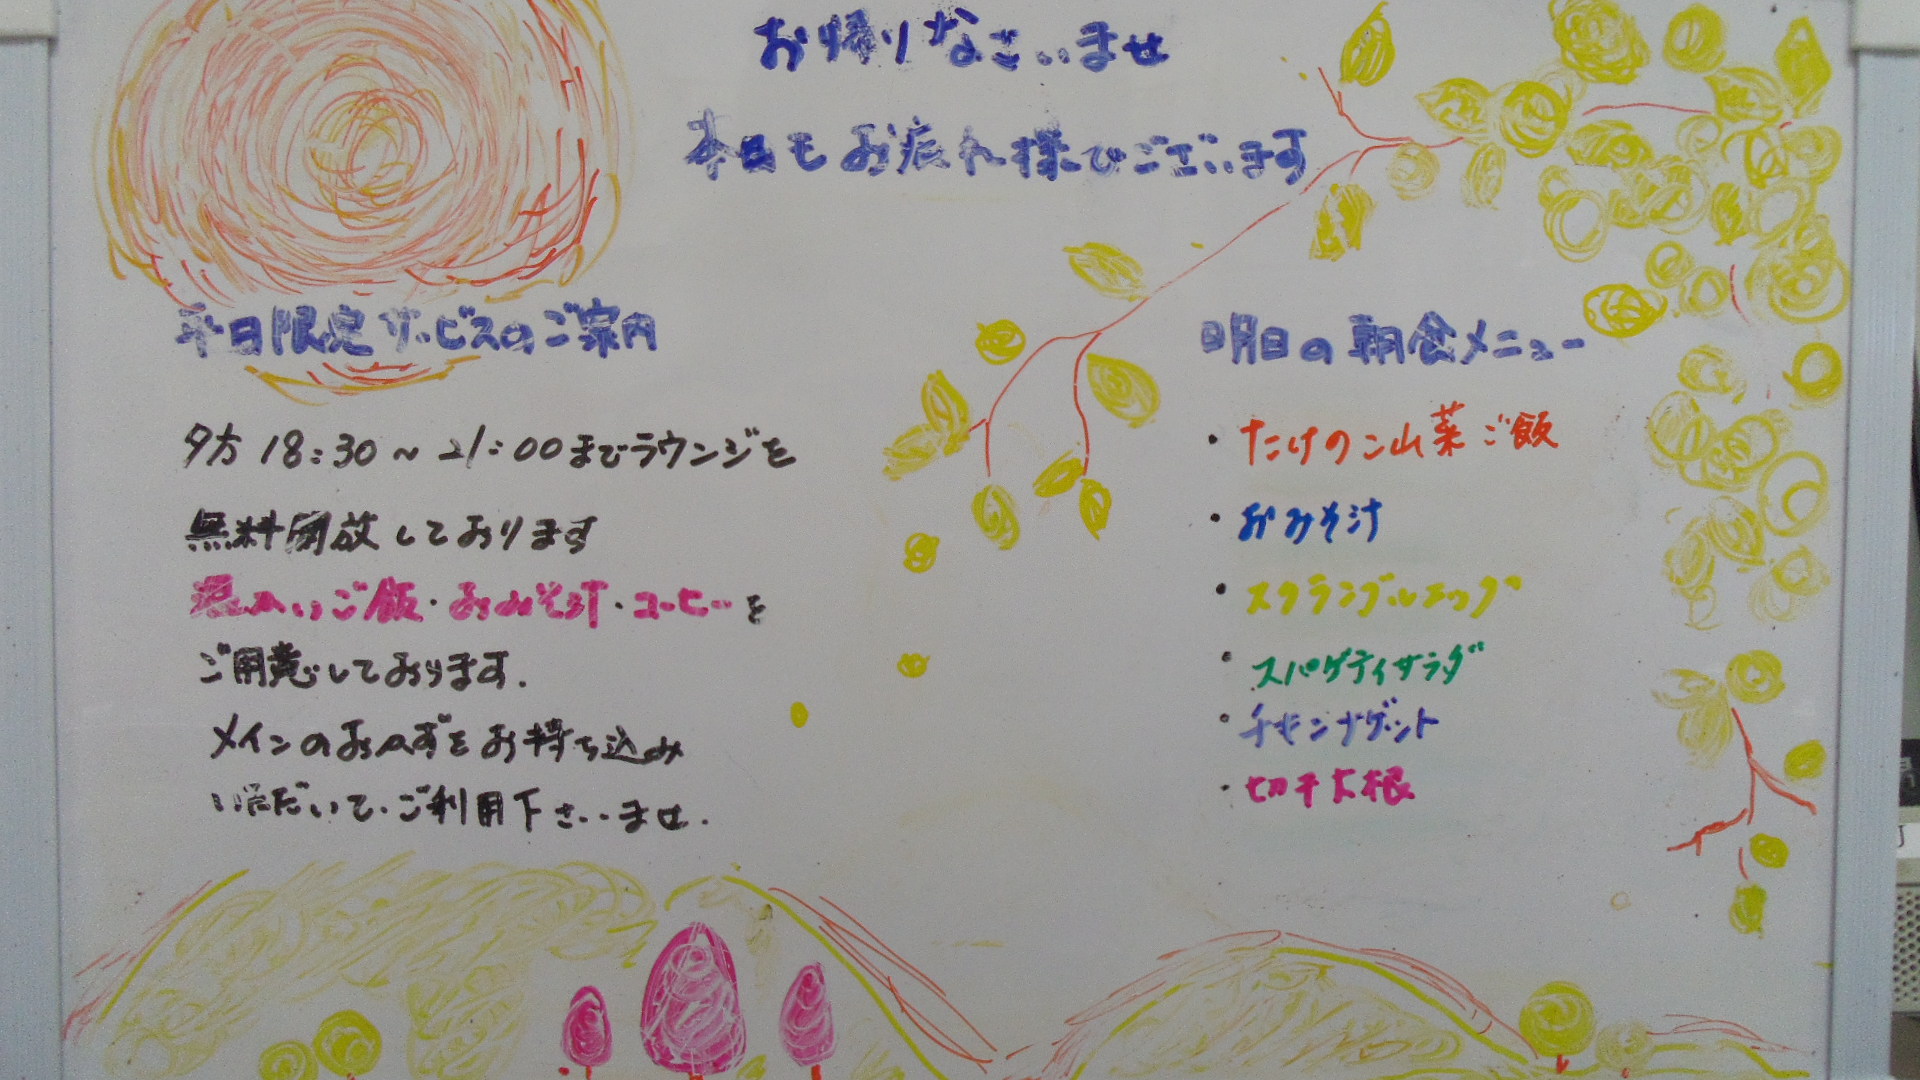 お帰りなさいませ
本日もお疲れ様でございます
平日限定サービスのご案内
夕方 18:30～21:00までラウンジを
無料開放しております
温かいご飯・おみそ汁・コーヒーを
ご用意しております.
メインのおかずをお持ち込み
いただいて、ご利用下さいませ.
明日の朝食メニュー
・たけのこ山菜ご飯
・おみそ汁
・スクランブルエッグ
・スパゲティサラダ
・チキンナゲット
・切干大根